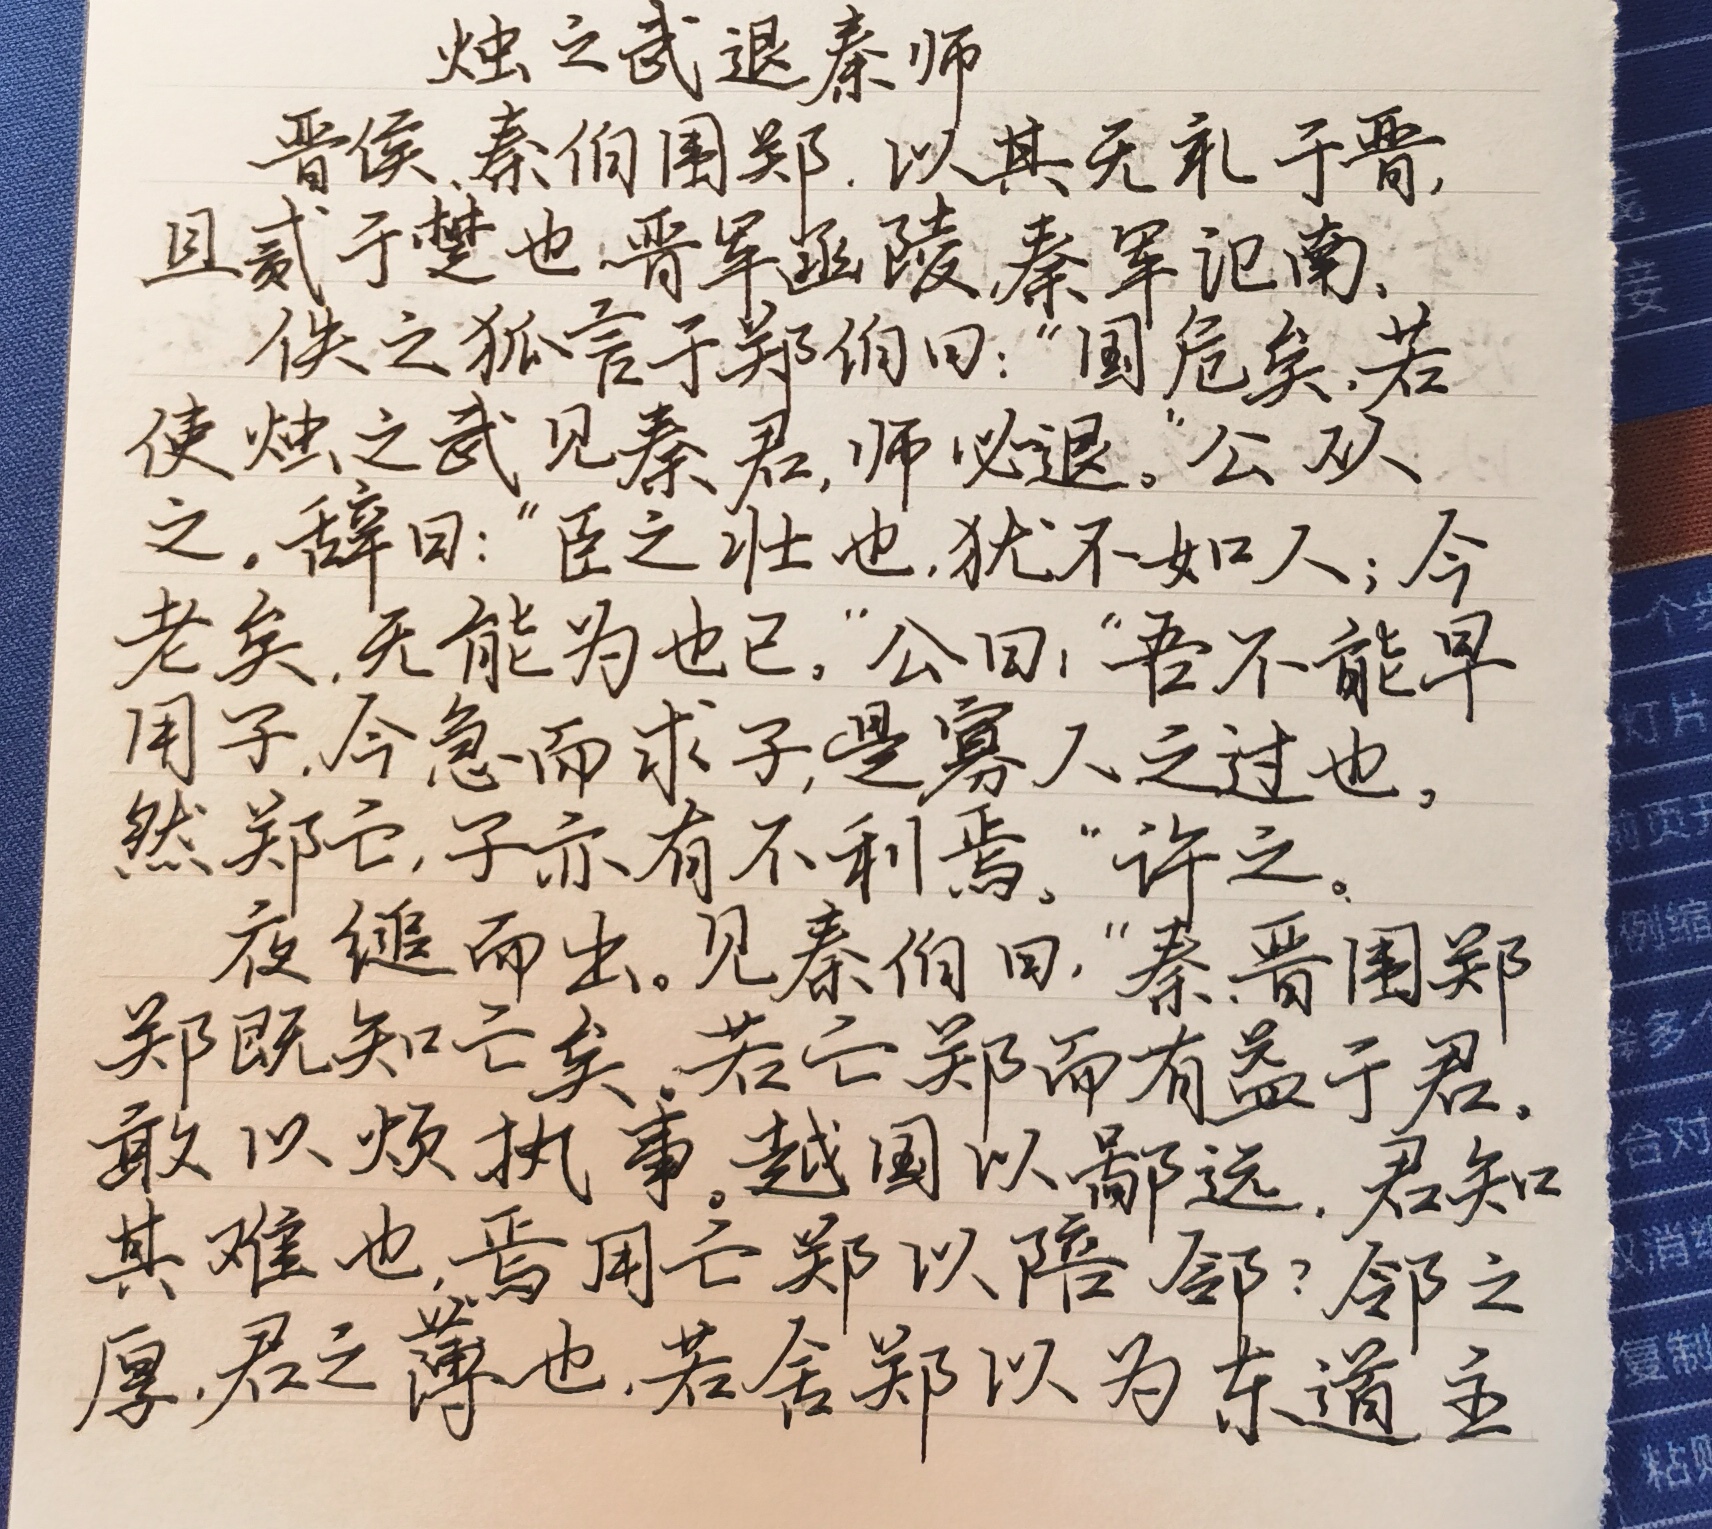 烛之武退秦师
晋侯、秦伯围郑，以其无礼于晋，
且贰于楚也，晋军函陵，秦军氾南，
佚之狐言于郑伯曰：“国危矣，若
使烛之武见秦君，师必退。”公从
之。辞曰：“臣之壮也，犹不如人；今
老矣，无能为也已。”公曰，“吾不能早
用子，今急而求子，是寡人之过也，
然郑亡，子亦有不利焉。”许之。
夜缒而出。见秦伯曰，“秦、晋围郑
郑既知亡矣。若亡郑而有益于君，
敢以烦执事。越国以鄙远，君知
其难也，焉用亡郑以陪邻？邻之
厚，君之薄也，若舍郑以为东道主
接
一个
灯片
页
例缩
多个
合对
消
复制
粘贴